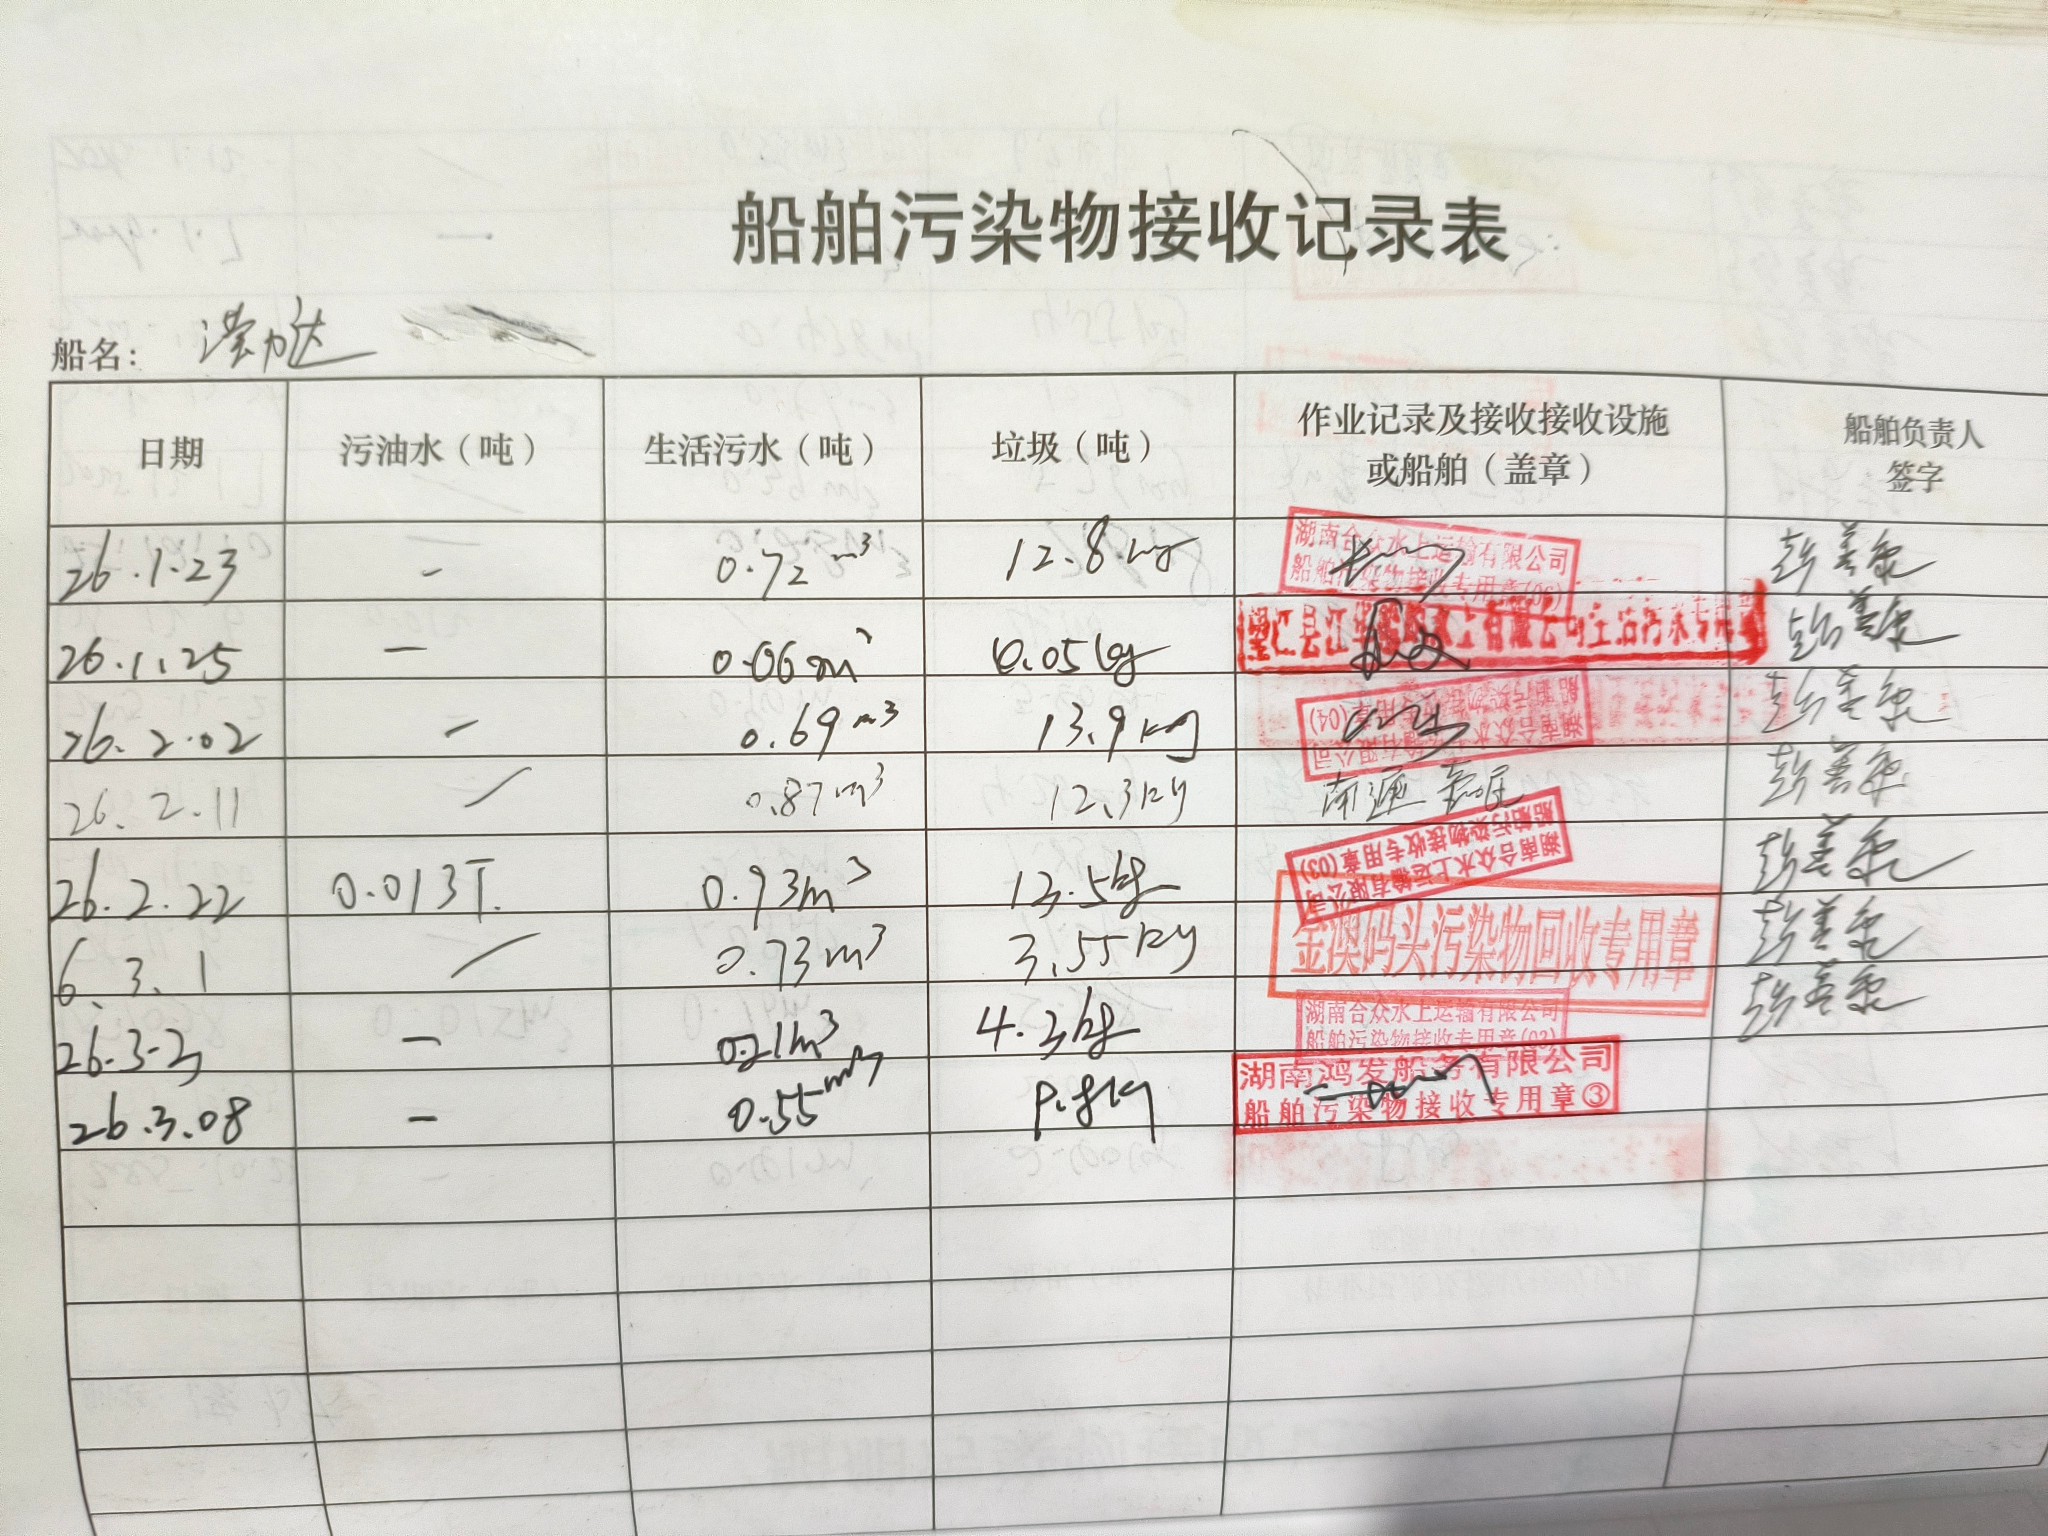 船舶污染物接收记录表
船名：
日期 污油水（吨） 生活污水（吨） 垃圾（吨） 作业记录及接收接收设施或船舶（盖章） 船舶负责人签字
26.1.23 - 0.72 m³ 12.8 kg 湖南合众水上运输有限公司 船舶污染物接收专用章 彭善
26.1.25 — 0.06 m³ 0.05 kg 望江县江 水上有限公司生活污水专用章 彭善
26.2.02 - 0.69 m³ 13.9 kg 湖南合众水上运输有限公司 船舶污染物接收专用章(04) 彭善
26.2.11 / 0.87 m³ 12.3 kg 南通 彭善
26.2.22 0.013T. 0.93 m³ 13.5 kg 湖南合众水上运输有限公司 船舶污染物接收专用章(03) 彭善
6.3.1 / 0.73 m³ 3.55 kg 金澳码头污染物回收专用章 彭善
26.3.3 - 0.21 m³ 4.3 kg 湖南合众水上运输有限公司 船舶污染物接收专用章(03) 彭善
26.3.08 - 0.55 m³ 9.8 kg 湖南鸿发船务有限公司 船舶污染物接收专用章③